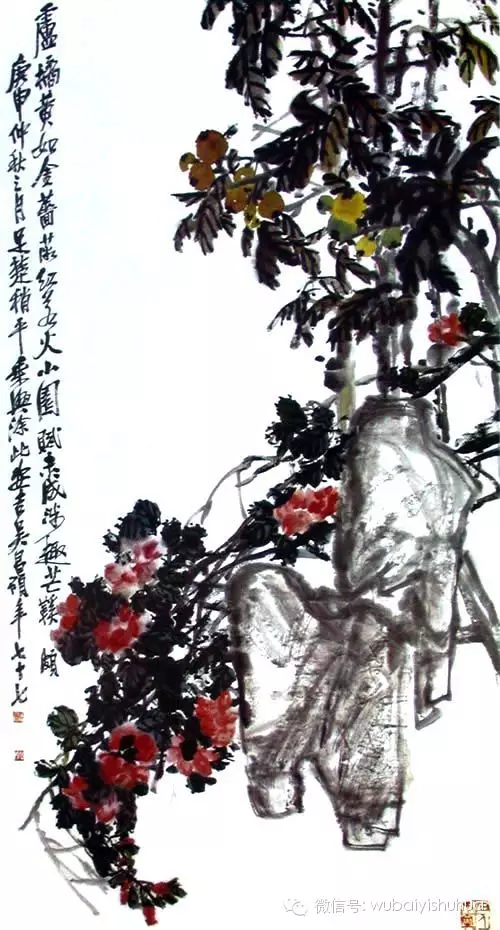 盧橘黃如金薔薇紅若火小園賦未成涉趣芒鞵頗
庚申仲秋之月足楚稍平乘興涂此安吉吳昌碩年七十七
微信号: wubaiyishuhua